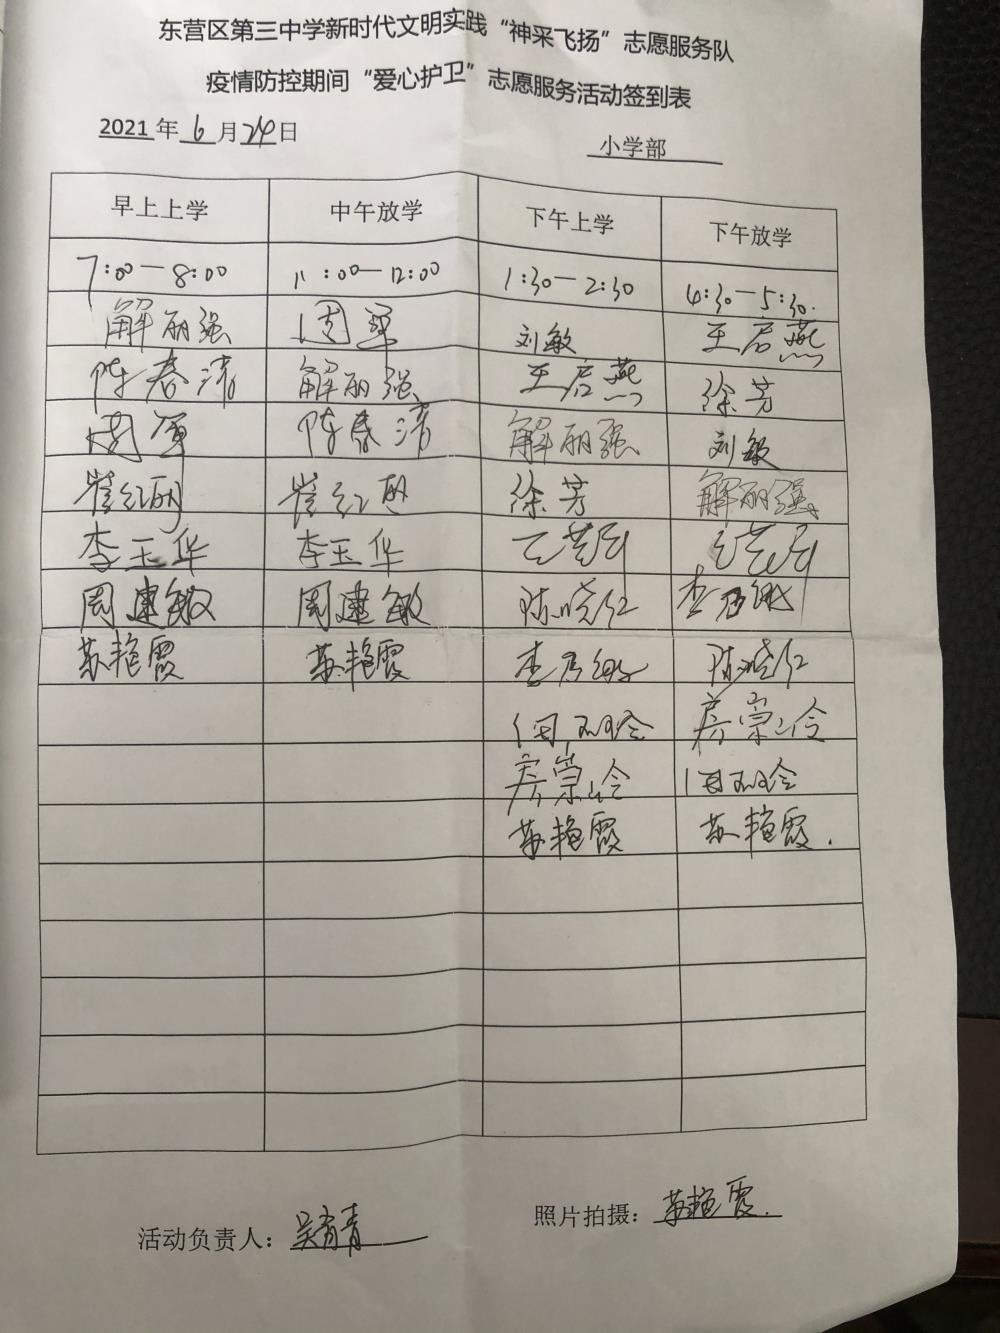 东营区第三中学新时代文明实践“神采飞扬”志愿服务队
疫情防控期间“爱心护卫”志愿服务活动签到表
2021年6月24日
小学部
早上上学 中午放学 下午上学 下午放学
7:00—8:00 11:00—12:00 1:30—2:30 4:30—5:30.
解丽强 刘敏 王启燕
陈春涛 解丽强 王启燕 徐芳
陈春涛 解丽强 刘敏
崔红丽 崔红丽 徐芳 解丽强
李玉华 李玉华
周建敏 周建敏 陈晓红
苏艳霞 苏艳霞 陈晓红
房崇玲
房崇玲
苏艳霞 苏艳霞.
活动负责人：吴青青
照片拍摄：苏艳霞.